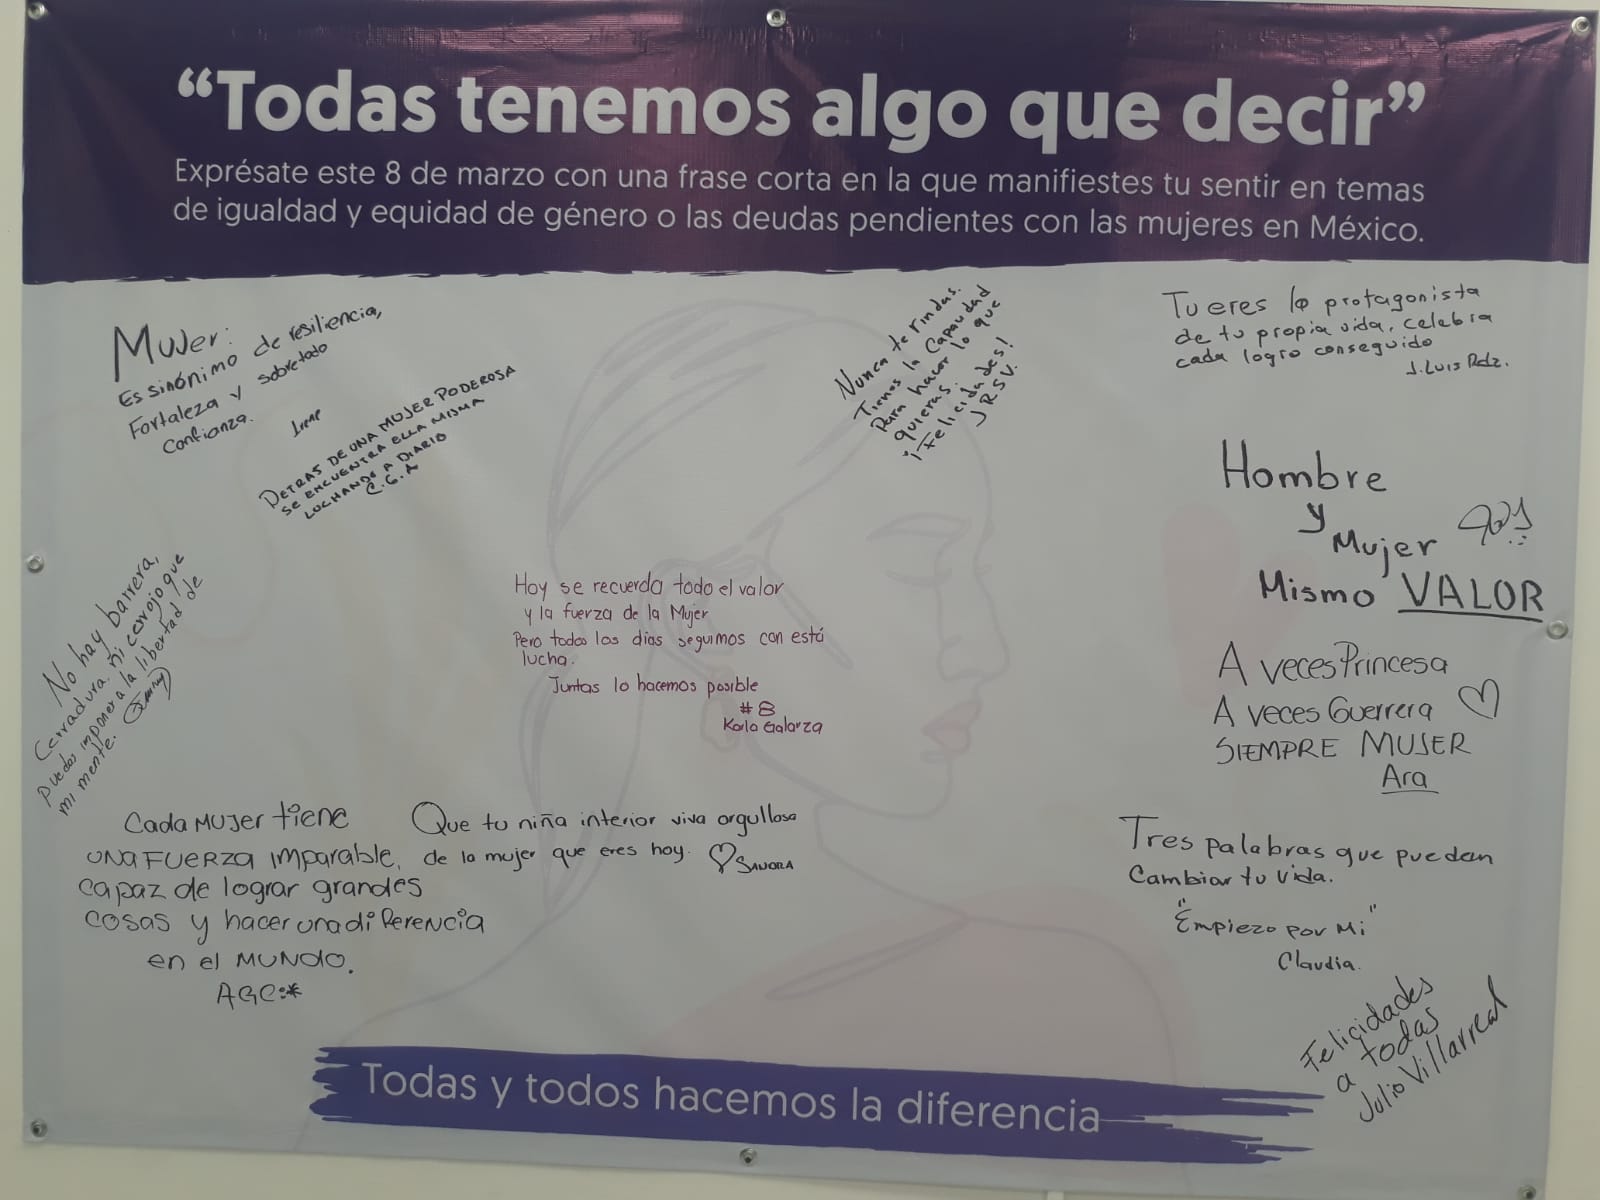 “Todas tenemos algo que decir”
Exprésate este 8 de marzo con una frase corta en la que manifiestes tu sentir en temas
de igualdad y equidad de género o las deudas pendientes con las mujeres en México.
Mujer:
Es sinónimo de resiliencia,
Fortaleza y sobretodo
Confianza.
Irene
DETRAS DE UNA MUJER PODEROSA
SE ENCUENTRA ELLA MISMA
LUCHANDO A DIARIO
C.G.A
Nunca te rindas.
Tienes la Capacidad
Para hacer lo que
quieras.
¡Felicidades!
JRSV.
Tu eres la protagonista
de tu propia vida, celebra
cada logro conseguido
J. Luis Rdz.
Hombre
y
Mujer
Mismo VALOR
No hay barrera,
Cerradura, ni cerrojo que
puedas imponer a la libertad de
mi mente.
Hoy se recuerda todo el valor
y la fuerza de la Mujer
Pero todos los días seguimos con está
lucha.
Juntas lo hacemos posible
#8
Karla Galarza
A veces Princesa
A veces Guerrera
SIEMPRE MUJER
Ara
Cada MUJER tiene
UNA FUERZA IMPARABLE,
capaz de lograr grandes
cosas y hacer una diferencia
en el MUNDO.
AGC:*
Que tu niña interior viva orgullosa
de la mujer que eres hoy.
SANDRA
Tres palabras que pueden
Cambiar tu vida.
"Empiezo por Mi"
Claudia.
Felicidades
a todas
Julio Villarreal
Todas y todos hacemos la diferencia